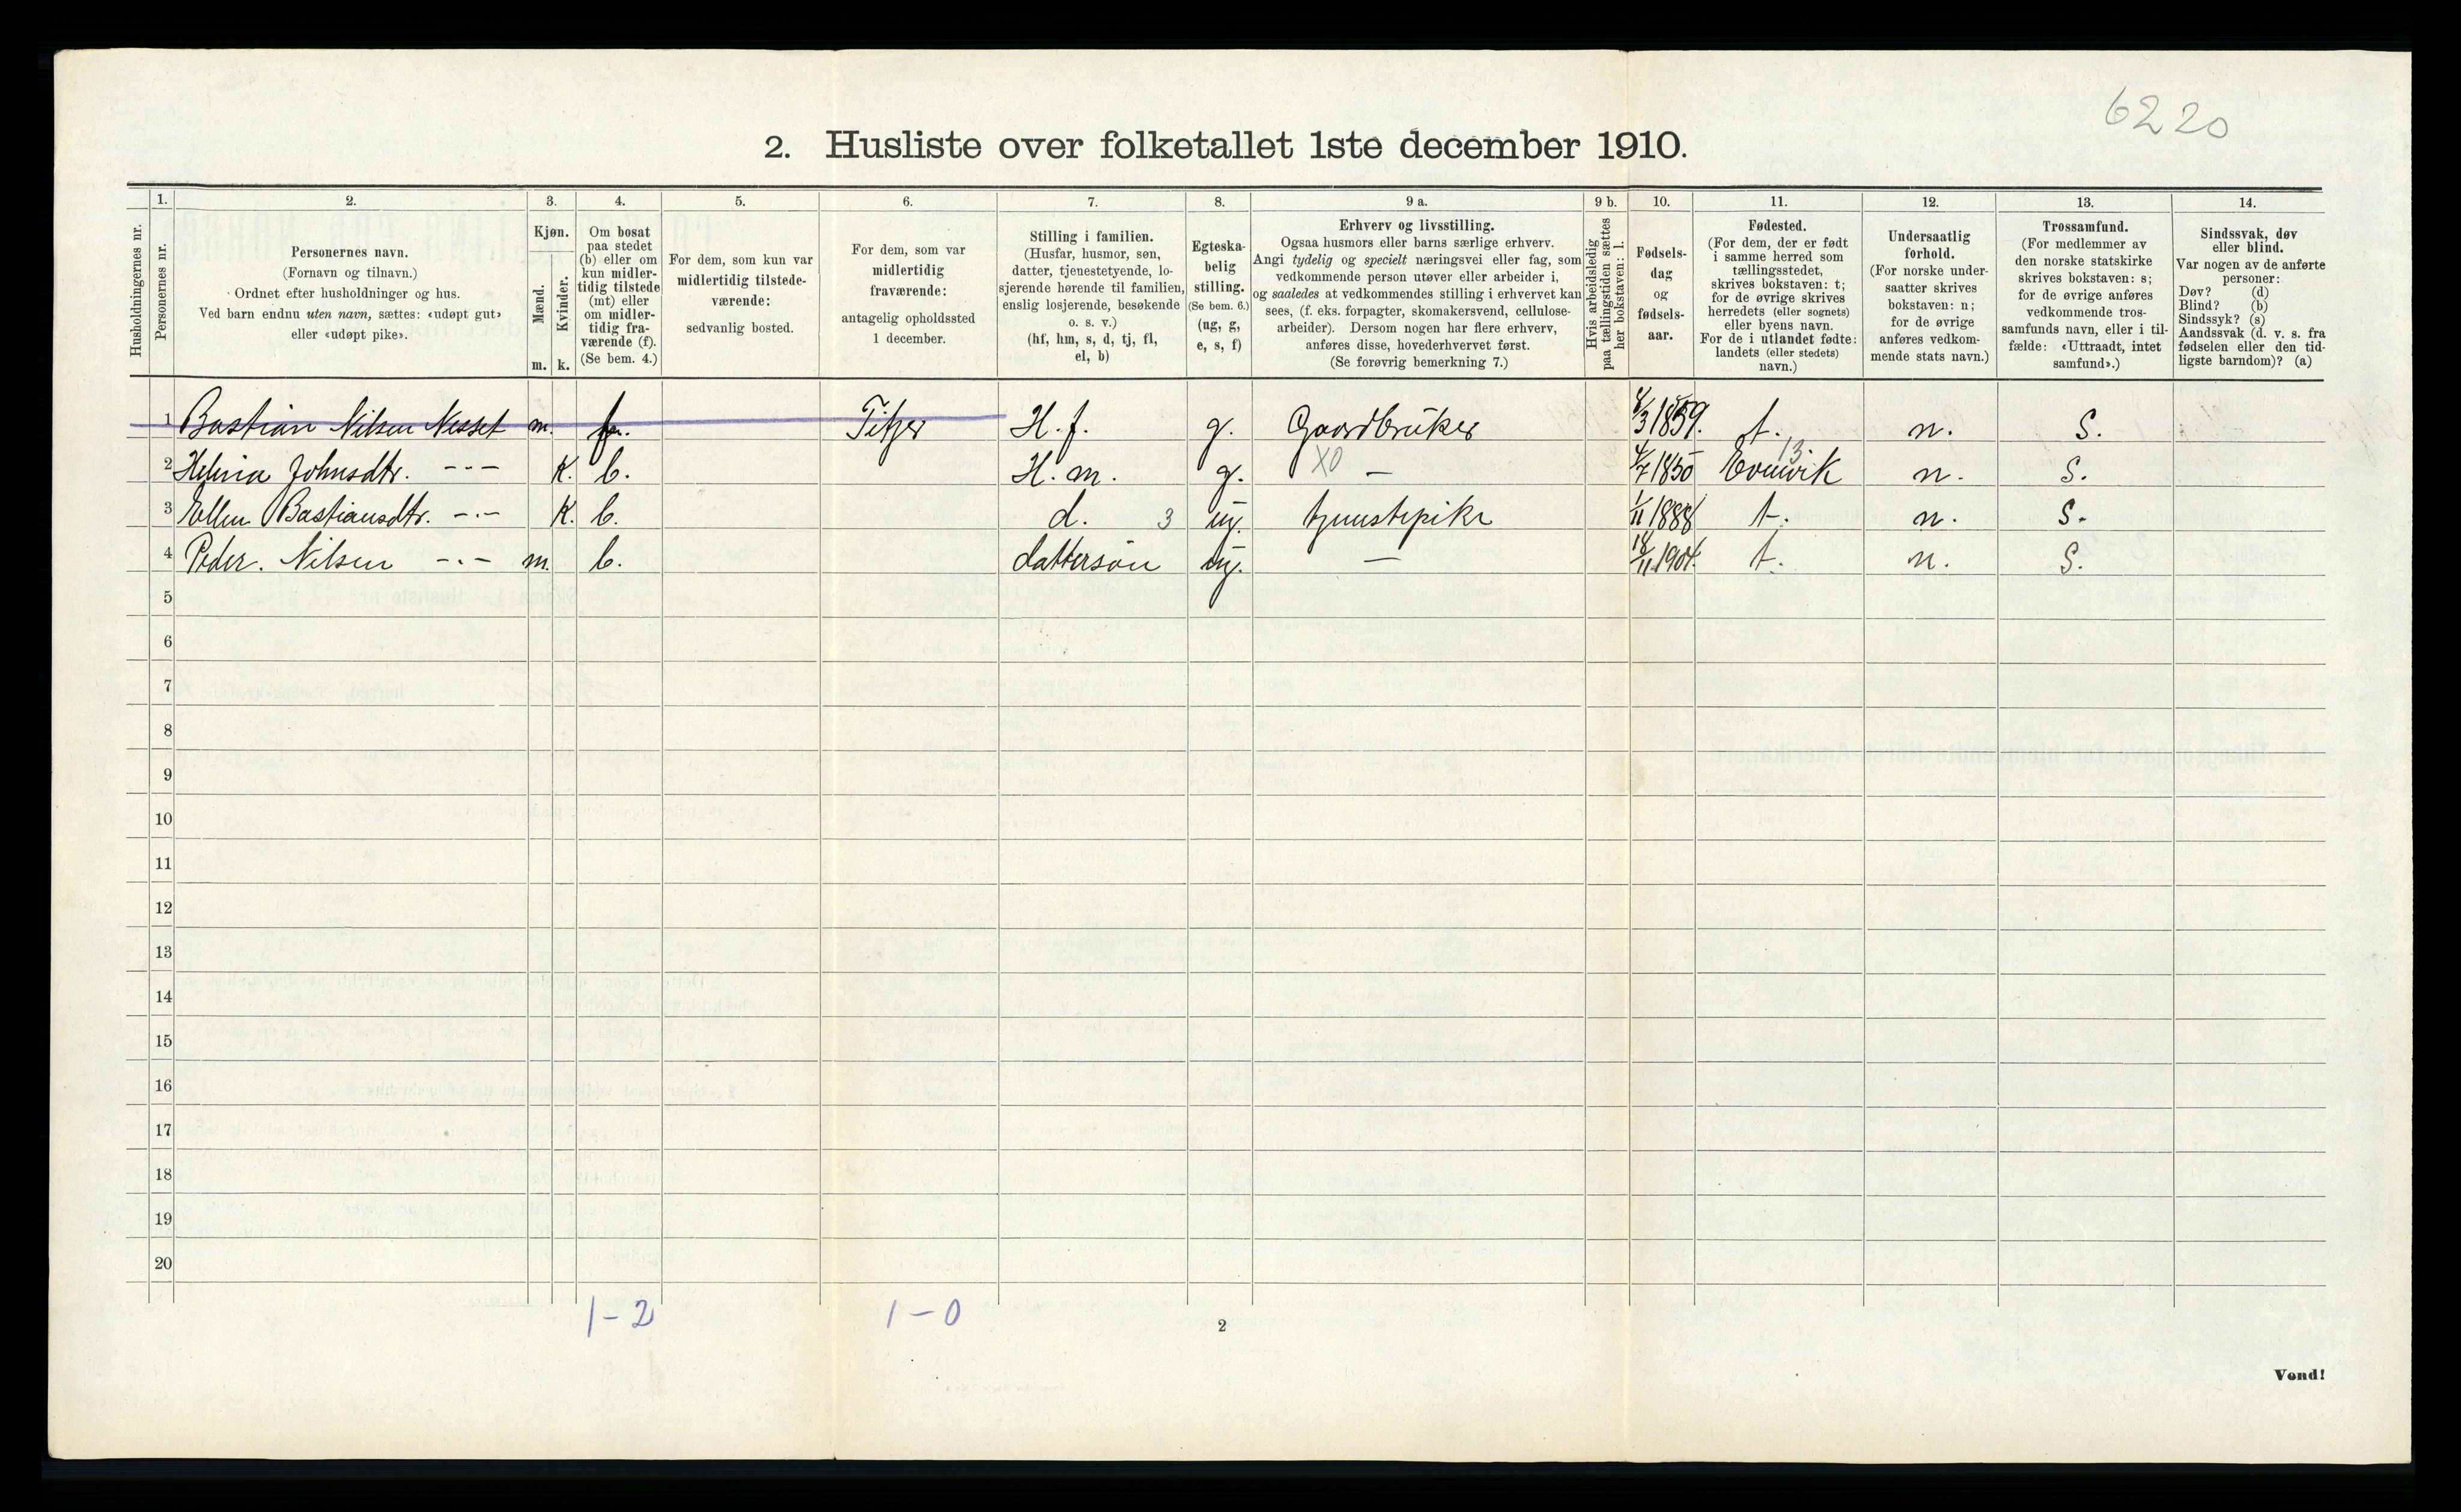 6220
2. Husliste over folketallet 1ste december 1910.
Husholdningernes nr.
1.
Personernes nr.
2.
Personernes navn.
(Fornavn og tilnavn.)
Ordnet efter husholdninger og hus.
Ved barn endnu uten navn, sættes: «udøpt gut»
eller «udøpt pike».
3.
Kjøn.
Mænd.
Kvinder.
m. k.
4.
Om bosat
paa stedet
(b) eller om
kun midler-
tidig tilstede
(mt) eller
om midler-
tidig fra-
værende (f).
(Se bem. 4.)
5.
For dem, som kun var
midlertidig tilstede-
værende:
sedvanlig bosted.
6.
For dem, som var
midlertidig
fraværende:
antagelig opholdssted
1 december.
7.
Stilling i familien.
(Husfar, husmor, søn,
datter, tjenestetyende, lo-
sjerende hørende til familien,
enslig losjerende, besøkende
o. s. v.)
(hf, hm, s, d, tj, fl,
el, b)
8.
Egteska-
belig
stilling.
(Se bem. 6.)
(ug, g,
e, s, f)
9 a.
Erhverv og livsstilling.
Ogsaa husmors eller barns særlige erhverv.
Angi tydelig og specielt næringsvei eller fag, som
vedkommende person utøver eller arbeider i,
og saaledes at vedkommendes stilling i erhvervet kan
sees, (f. eks. forpagter, skomakersvend, cellulose-
arbeider). Dersom nogen har flere erhverv,
anføres disse, hovederhvervet først.
(Se forøvrig bemerkning 7.)
9 b.
Hvis arbeidsledig
paa tællingstiden sættes
her bokstaven: l.
10.
Fødsels-
dag
og
fødsels-
aar.
11.
Fødested.
(For dem, der er født
i samme herred som
tællingsstedet,
skrives bokstaven: t;
for de øvrige skrives
herredets (eller sognets)
eller byens navn.
For de i utlandet fødte:
landets (eller stedets)
navn.)
12.
Undersaatlig
forhold.
(For norske under-
saatter skrives
bokstaven: n;
for de øvrige
anføres vedkom-
mende stats navn.)
13.
Trossamfund.
(For medlemmer av
den norske statskirke
skrives bokstaven: s;
for de øvrige anføres
vedkommende tros-
samfunds navn, eller i til-
fælde: «Uttraadt, intet
samfund».)
14.
Sindssvak, døv
eller blind.
Var nogen av de anførte
personer:
Døv? (d)
Blind? (b)
Sindssyk? (s)
Aandssvak (d. v. s. fra
fødselen eller den tid-
ligste barndom)? (a)
1 Bastian Nilsen Nesset m. Titjer H. f. g. Gaardbruker 8/3 1859. t. n. S.
2 Johnsdtr. -"- K. b. H. m. g. X0 - 4/7 1850 13 n. S.
3 Ellen Bastiansdtr. -"- K. b. d. 3 ug. tjenstepike 1/11 1888 t. n. S.
4 Peder. Nilsen -"- m. b. dattersøn ug. - 18/11 1904. t. n. S.
5
6
7
8
9
10
11
12
13
14
15
16
17
18
19
20
1 - 2 1 - 0
2
Vend!